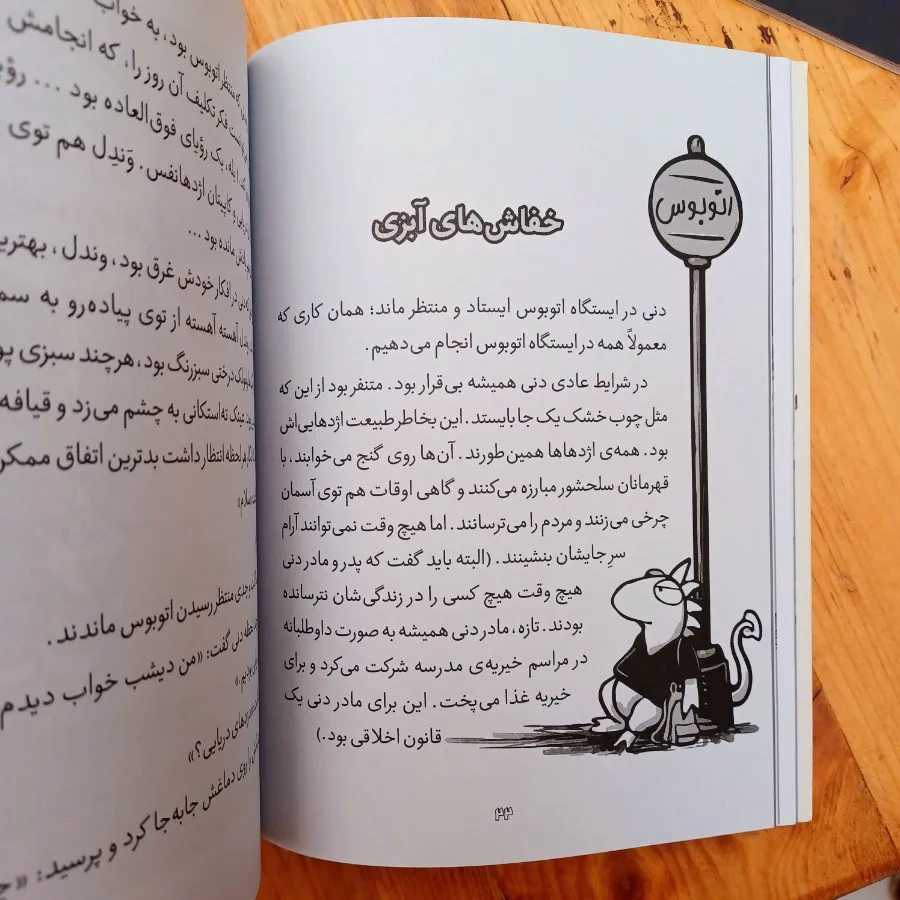 اتوبوس
خفاش‌های آبزی
دنی در ایستگاه اتوبوس ایستاد و منتظر ماند؛ همان کاری که
معمولاً همه در ایستگاه اتوبوس انجام می‌دهیم.
در شرایط عادی دنی همیشه بی‌قرار بود. متنفر بود از این که
مثل چوب خشک یک جا بایستد. این بخاطر طبیعت اژدهایی‌اش
بود. همه‌ی اژدهاها همین‌طورند. آن‌ها روی گنج می‌خوابند، با
قهرمانان سلحشور مبارزه می‌کنند و گاهی اوقات هم توی آسمان
چرخی می‌زنند و مردم را می‌ترسانند. اما هیچ وقت نمی‌توانند آرام
سرِ جایشان بنشینند. (البته باید گفت که پدر و مادر دنی
هیچ وقت هیچ کسی را در زندگی‌شان نترسانده
بودند. تازه، مادر دنی همیشه به صورت داوطلبانه
در مراسم خیریه‌ی مدرسه شرکت می‌کرد و برای
خیریه غذا می‌پخت. این برای مادر دنی یک
قانون اخلاقی بود.)
۴۴
که منتظر اتوبوس بود، به خواب
فکر تکلیف آن روز را، که انجامش
بله، یک رؤیای فوق‌العاده بود ...
و کاپیتان اژدهانفس. وَندِل هم توی
مانده بود ...
دنی در افکار خودش غرق بود، وندل، بهترین
آهسته آهسته از توی پیاده‌رو به
درختی سبزرنگ بود، هرچند سبزی
عینک ته‌استکانی به چشم می‌زد و قیافه
هر لحظه انتظار داشت بدترین اتفاق ممکن
سلام»
منتظر رسیدن اتوبوس ماندند.
دنی گفت: «من دیشب خواب دیدم
دریایی؟»
روی دماغش جابه‌جا کرد و پرسید: